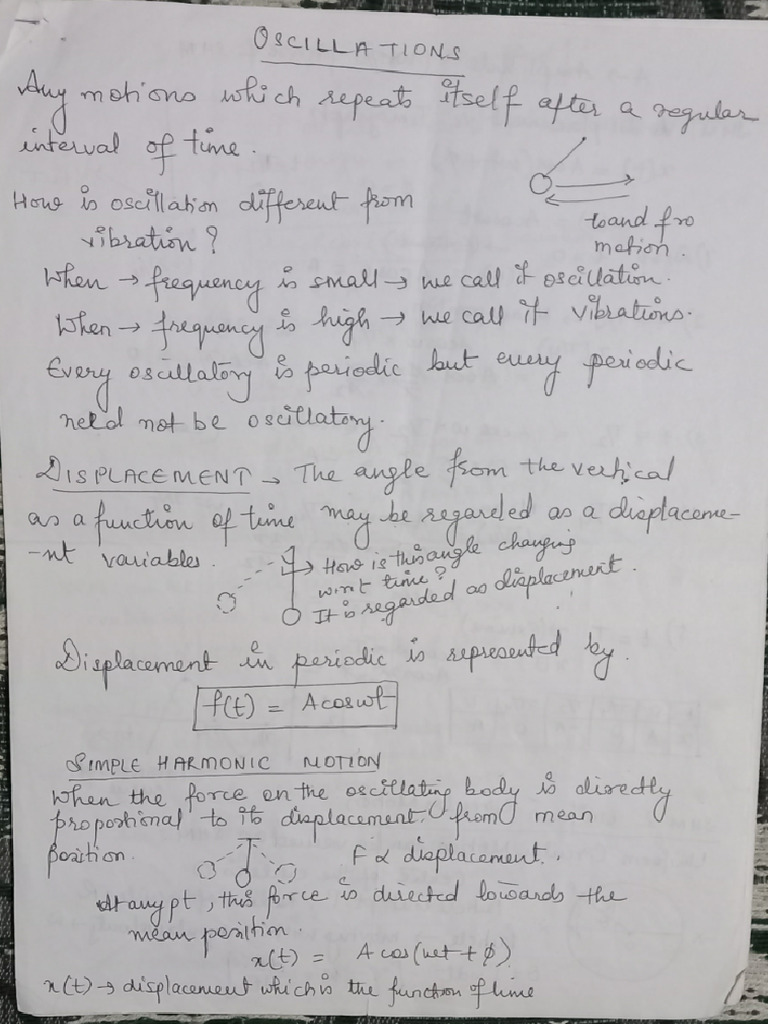 OSCILLATIONS
Any motions which repeats itself after a regular
interval of time.
to and fro
motion.
How is oscillation different from
vibration?
When → frequency is small → we call it oscillation.
When → frequency is high → we call it vibrations.
Every oscillatory is periodic but every periodic
need not be oscillatory.
DISPLACEMENT → The angle from the vertical
as a function of time may be regarded as a displaceme-
-nt variables.
→ How is this angle changing
w.r.t time?
It is regarded as displacement.
Displacement in periodic is represented by.
f(t) = A cos ωt
SIMPLE HARMONIC MOTION
When the force on the oscillating body is directly
proportional to its displacement from mean
position.
F ∝ displacement.
At any pt, this force is directed towards the
mean position.
x(t) = A cos(ωt + ϕ)
x(t) → displacement which is the function of time